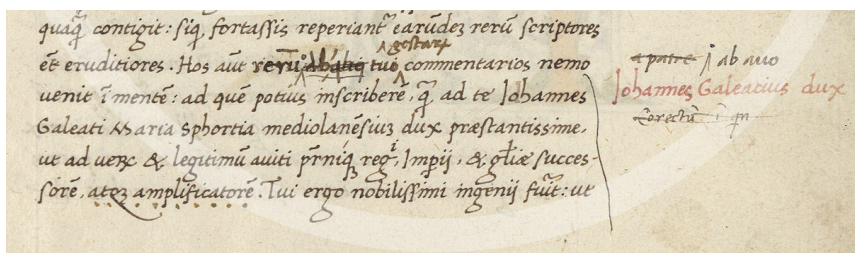 quaq̃ contigit: siq̃ fortassis reperiant᷑ earũdez rerũ scriptores
eẽt eruditiores. Hos aũt rerũ gestarʒ tui commentarios nemo
venit ĩ mentẽ: ad quẽ potius inscriberẽ, q̃ ad te Iohannes
Galeati Maria Sphortia mediolanẽsiuʒ dux præstantissime.
ut ad verũ & legitimũ aviti regi, Imperii, & gl̃iæ succes-
sorẽ, atqʒ amplificatorẽ. Tui ergo nobilissimi ingenij fuit: ut
a patre ab avo
Iohannes Galeatius dux
Correctũ ĩ